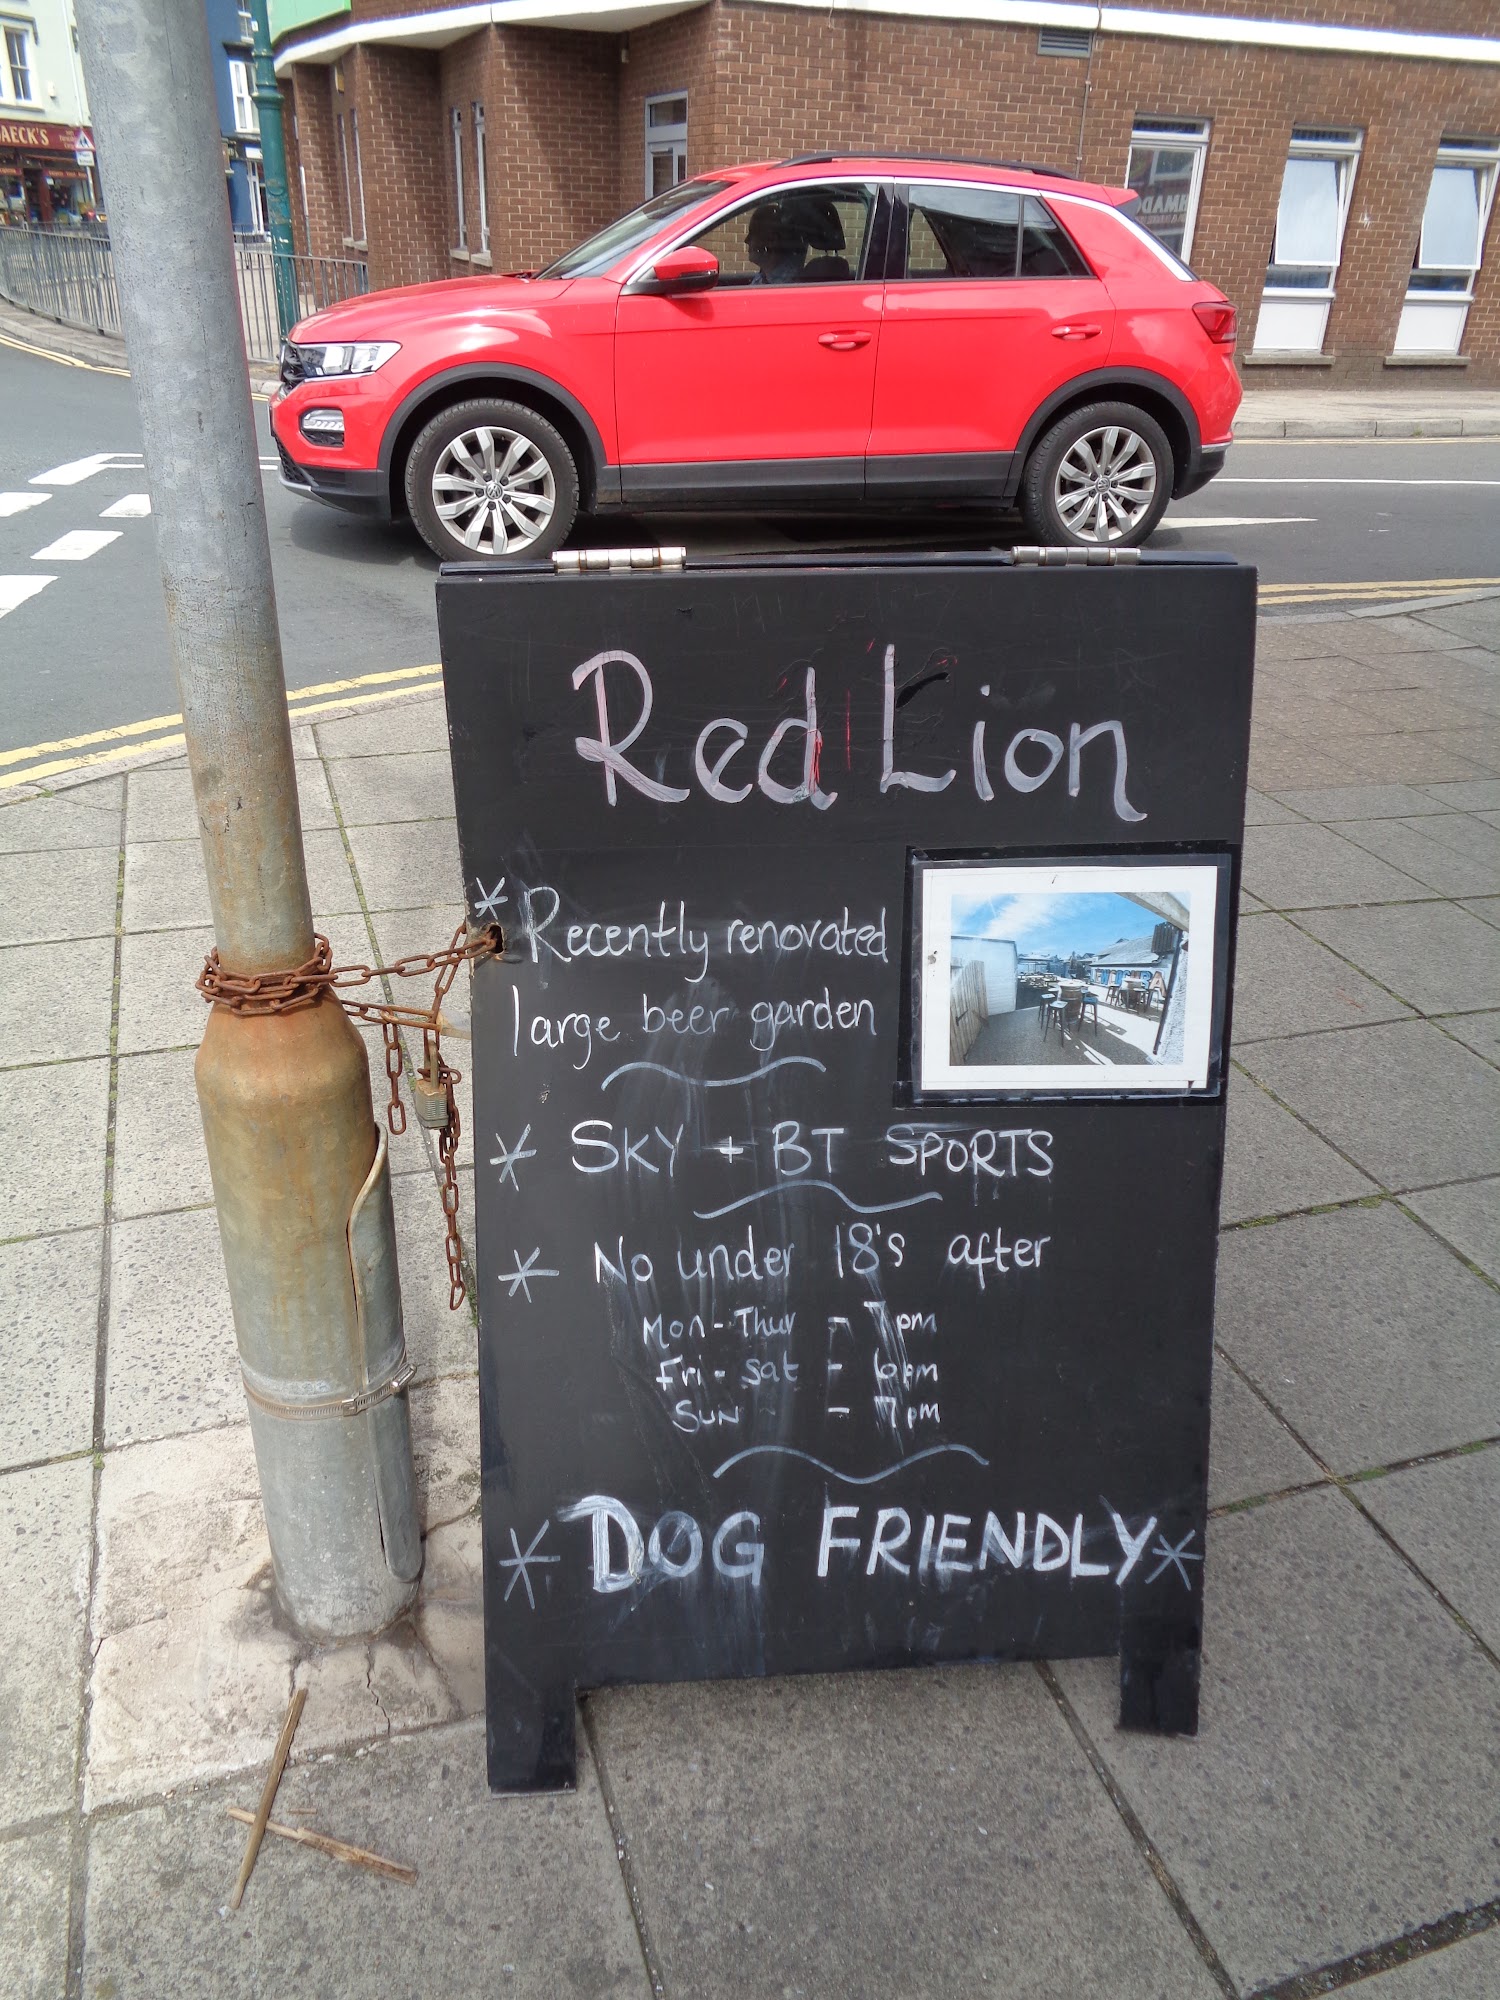 Red Lion
* Recently renovated
large beer garden
* SKY + BT SPORTS
* No under 18's after
Mon-Thur - 7pm
Fri-Sat - 6pm
SUN - 7pm
* DOG FRIENDLY *